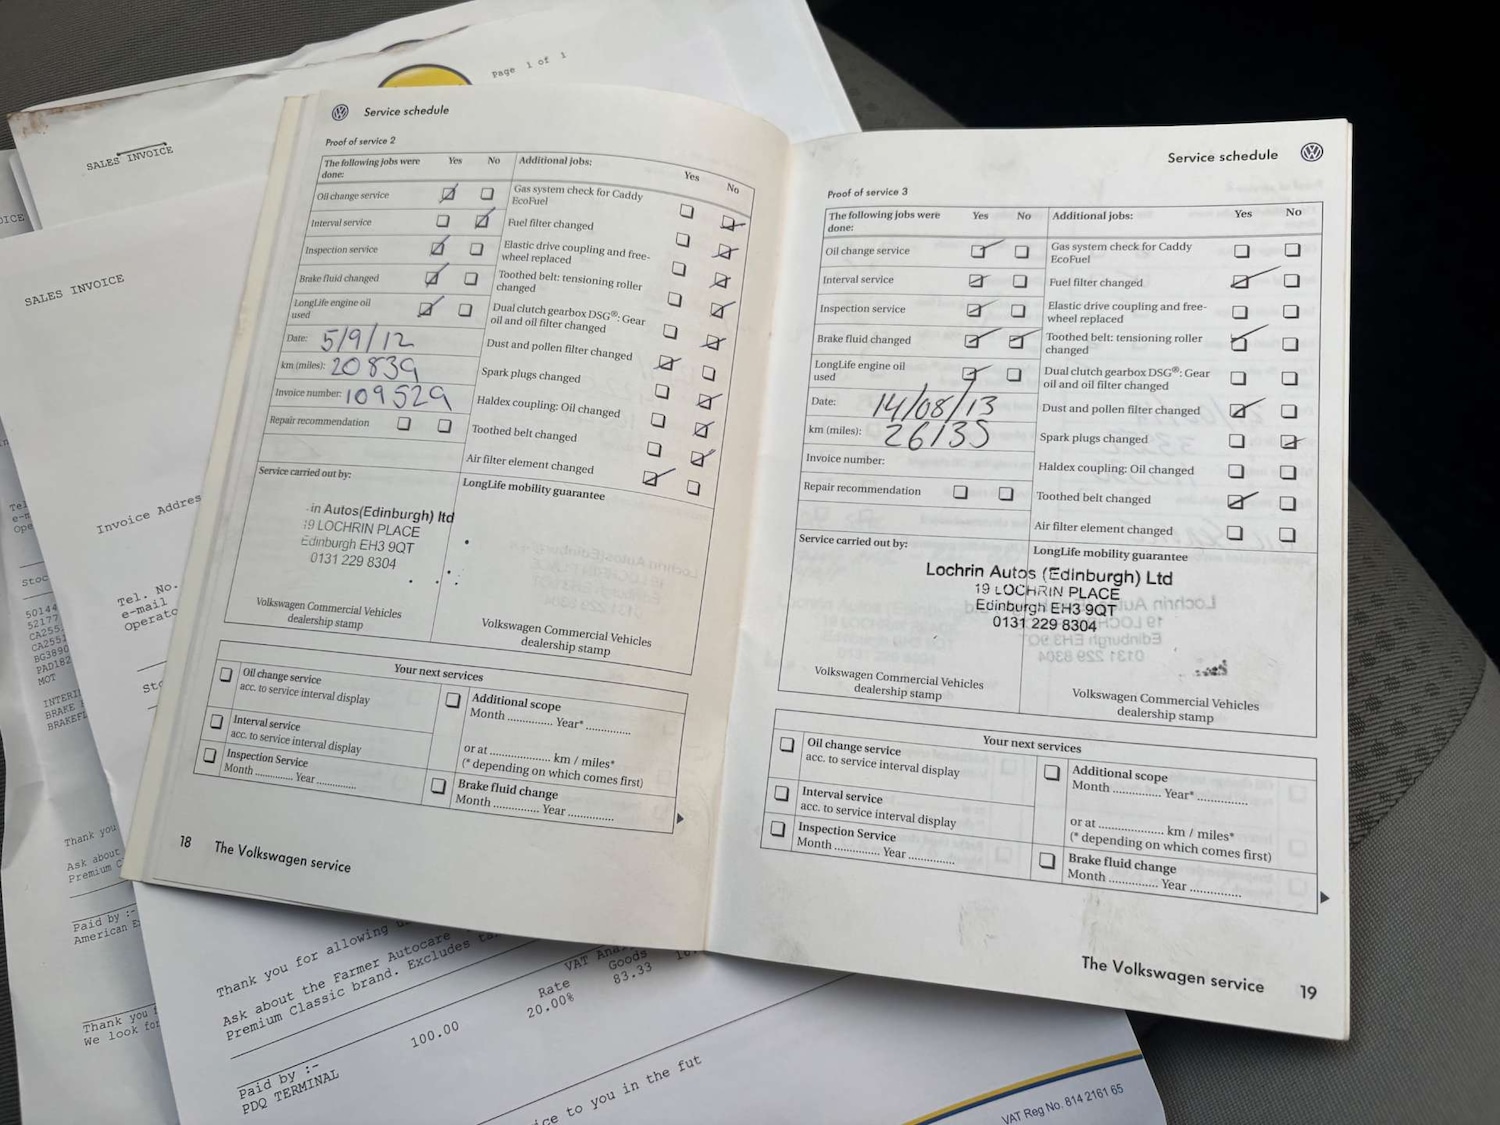 Page 1 of 1
SALES INVOICE
SALES INVOICE
Invoice Addres
Tel. No.
e-mail
Operato
Stoc
50144
52177
BG3890
PAD182
MOT
BRAKE
Thank you
Ask about
Premium C
Paid by :-
American E
Thank you
We look for
Service schedule
Proof of service 2
The following jobs were done: Yes No
Oil change service
Interval service
Inspection service
Brake fluid changed
LongLife engine oil used
Date: 5/9/12
km (miles): 20839
Invoice number: 109529
Repair recommendation
Additional jobs: Yes No
Gas system check for Caddy EcoFuel
Fuel filter changed
Elastic drive coupling and free-wheel replaced
Toothed belt: tensioning roller changed
Dual clutch gearbox DSG®: Gear oil and oil filter changed
Dust and pollen filter changed
Spark plugs changed
Haldex coupling: Oil changed
Toothed belt changed
Air filter element changed
Service carried out by:
in Autos(Edinburgh) ltd
19 LOCHRIN PLACE
Edinburgh EH3 9QT
0131 229 8304
Volkswagen Commercial Vehicles
dealership stamp
LongLife mobility guarantee
Volkswagen Commercial Vehicles
dealership stamp
Your next services
Oil change service
acc. to service interval display
Interval service
acc. to service interval display
Inspection Service
Month .............. Year ..............
Additional scope
Month .............. Year* ..............
or at .................. km / miles*
(* depending on which comes first)
Brake fluid change
Month .............. Year ..............
18 The Volkswagen service
Service schedule
Proof of service 3
The following jobs were done: Yes No
Oil change service
Interval service
Inspection service
Brake fluid changed
LongLife engine oil used
Date: 14/08/13
km (miles): 26135
Invoice number:
Repair recommendation
Additional jobs: Yes No
Gas system check for Caddy EcoFuel
Fuel filter changed
Elastic drive coupling and free-wheel replaced
Toothed belt: tensioning roller changed
Dual clutch gearbox DSG®: Gear oil and oil filter changed
Dust and pollen filter changed
Spark plugs changed
Haldex coupling: Oil changed
Toothed belt changed
Air filter element changed
Service carried out by:
LongLife mobility guarantee
Lochrin Autos (Edinburgh) Ltd
19 LOCHRIN PLACE
Edinburgh EH3 9QT
0131 229 8304
Volkswagen Commercial Vehicles
dealership stamp
Volkswagen Commercial Vehicles
dealership stamp
Your next services
Oil change service
acc. to service interval display
Interval service
acc. to service interval display
Inspection Service
Month .............. Year ..............
Additional scope
Month .............. Year* ..............
or at .................. km / miles*
(* depending on which comes first)
Brake fluid change
Month .............. Year ..............
The Volkswagen service 19
Thank you for allowing
Ask about the Farmer Autocare
Premium Classic brand. Excludes
VAT
Rate Goods
20.00% 83.33
100.00
Paid by :-
PDQ TERMINAL
to you in the fut
VAT Reg No. 814 2161 65